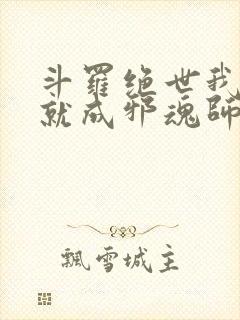 斗羅絶世我
就成邪魂師
飄雪城主